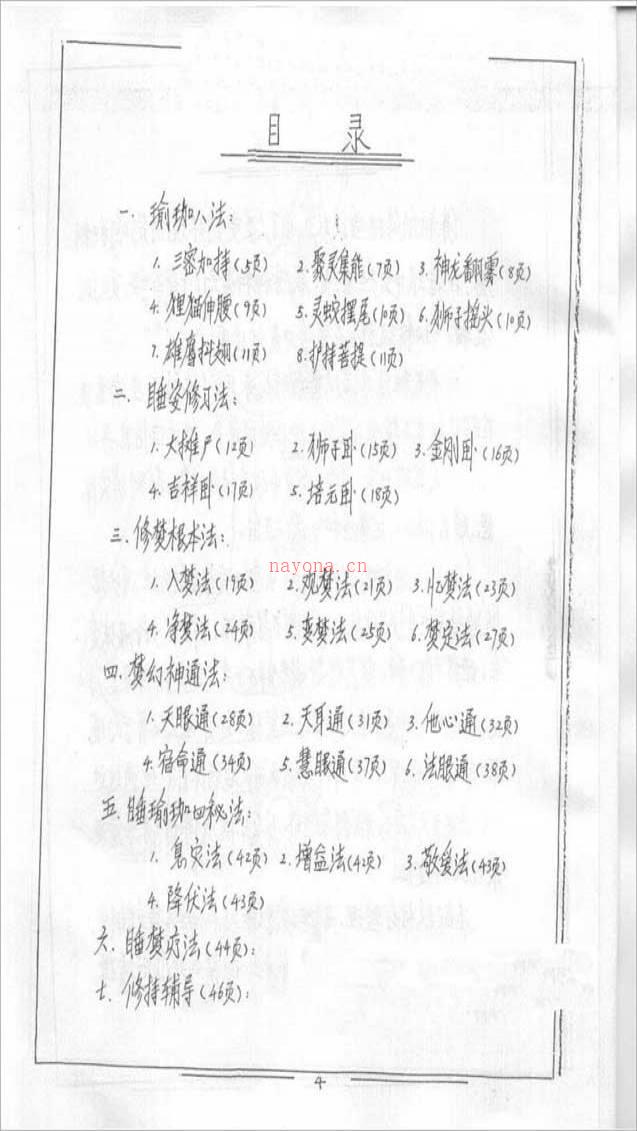 目 录
一. 瑜珈八法:
1. 三密加持(5页) 2. 聚灵集能(7页) 3. 神龙翻云(8页)
4. 狸猫伸腰(9页) 5. 灵蛇摆尾(10页) 6. 狮子摇头(10页)
7. 雄鹰抖翅(11页) 8. 护持菩提(11页)
二. 睡姿修习法:
1. 大摊尸(12页) 2. 狮子卧(15页) 3. 金刚卧(16页)
4. 吉祥卧(17页) 5. 培元卧(18页)
三. 修梦根本法:
nayona.cn
1. 入梦法(19页) 2. 观梦法(21页) 3. 忆梦法(23页)
4. 净梦法(24页) 5. 变梦法(25页) 6. 梦定法(27页)
四. 梦幻神通法:
1. 天眼通(28页) 2. 天耳通(31页) 3. 他心通(32页)
4. 宿命通(34页) 5. 慧眼通(37页) 6. 法眼通(38页)
五. 睡瑜珈四秘法:
1. 息灾法(42页) 2. 增益法(42页) 3. 敬爱法(43页)
4. 降伏法(43页)
六. 睡梦疗法(44页):
七. 修持辅导(46页):
4